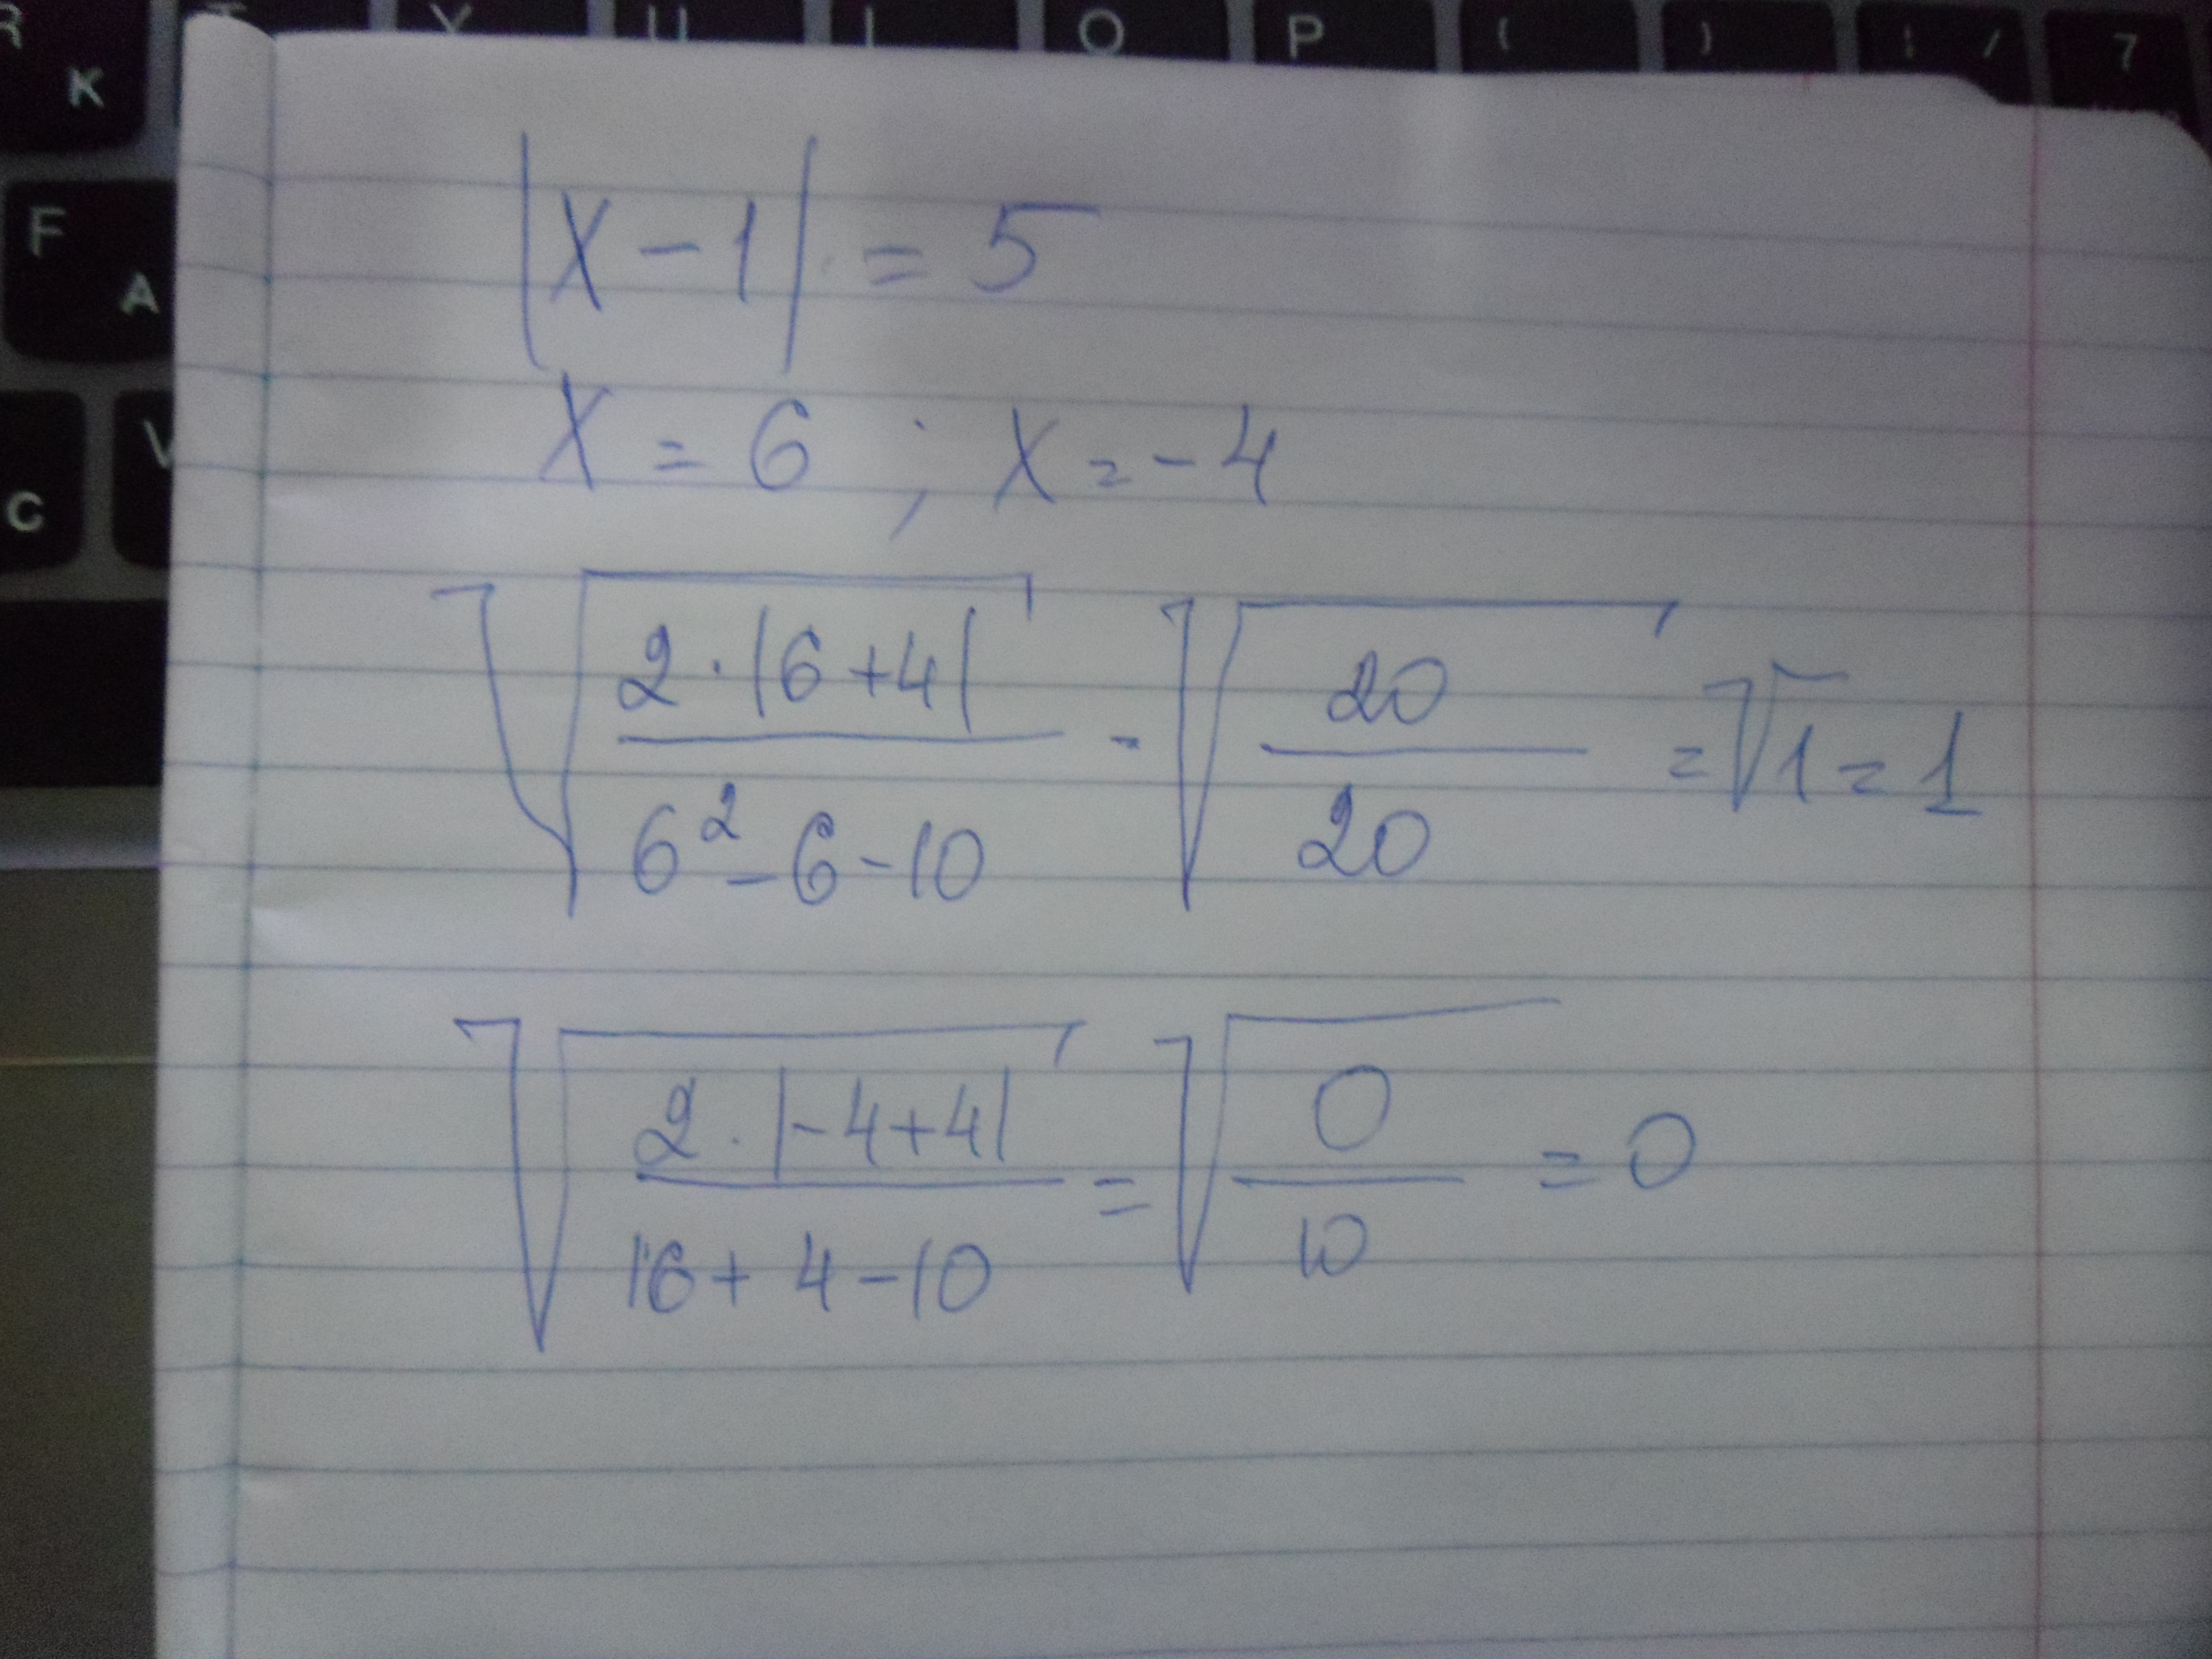 R T Y U I O P ( ) ! / 7
K
F
A
V
C
|x-1| = 5
x = 6 ; x = -4
√(2·|6+4| / 6²-6-10) = √(20/20) = √1 = 1
√(2·|-4+4| / 16+4-10) = √(0/10) = 0